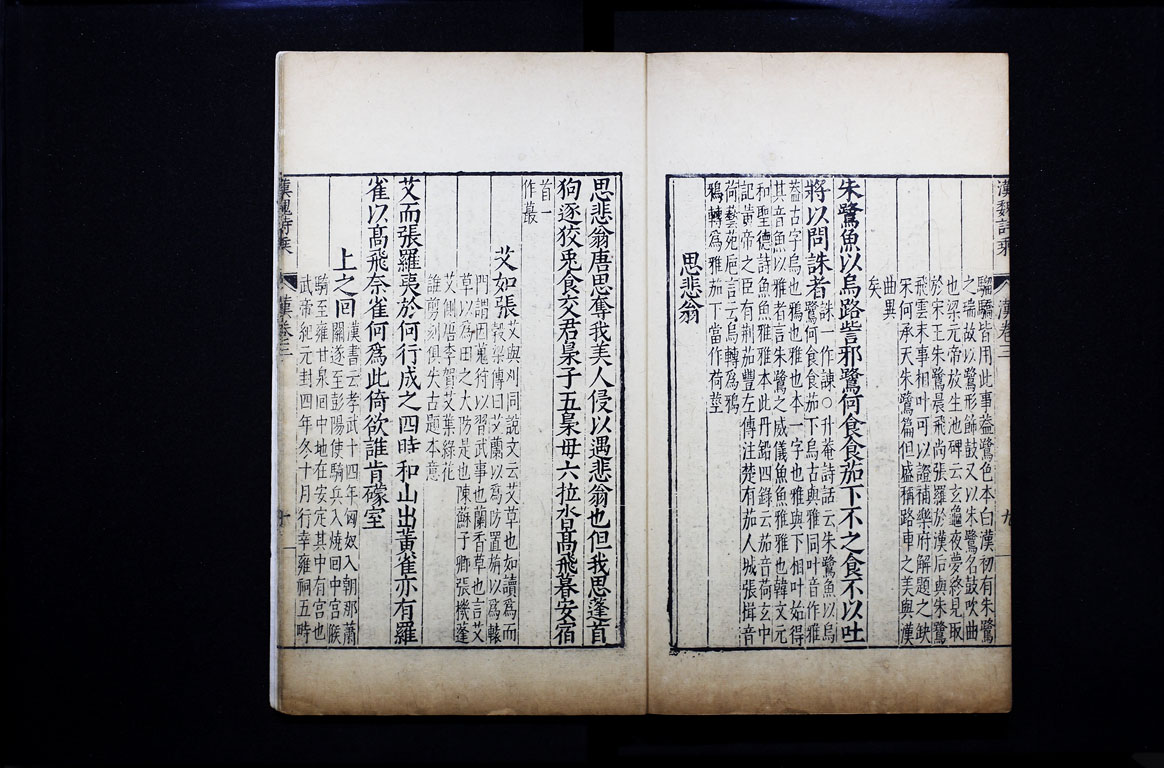 漢魏詩乘
漢卷三
九
騶驕皆用此事蓋鷺色本白漢初有朱鷺
之瑞故以鷺形飾鼓又以朱鷺名鼓吹曲
也梁元帝放生池碑云玄龜夜夢終見取
於宋王朱鷺晨飛尚張羅於漢后與朱鷺
飛雲末事相叶可以證補樂府解題之缺
宋何承天朱鷺篇但盛稱路車之美與漢
曲異
矣
朱鷺魚以烏路訾邪鷺何食食茄下不之食不以吐
將以問誅者
誅一作諫○升菴詩話云朱鷺魚以烏
鷺何食食茄下烏古與雅同叶音作雅
蓋古字烏也鴉也雅也本一字也雅與下相叶始得
其音魚以雅者言朱鷺之威儀魚魚雅雅也韓文元
和聖德詩魚魚雅雅本此丹鉛四錄云茄音荷玄中
記黃帝之臣有荆茄豐左傳注楚有茄人城張揖音
荷藝苑巵言云烏轉為鴉
鴉轉為雅茄下當作荷莖
思悲翁
思悲翁唐思奪我美人侵以遇悲翁也但我思蓬首
狗逐狡兎食交君梟子五梟毋六拉沓高飛暮安宿
首一
作蕞
艾如張
艾與刈同說文云艾草也如讀為而
穀梁傳曰艾蘭以為防置旃以為轅
門謂因蒐狩以習武事也蘭香草也言艾
草以為田之大防是也陳蘇子卿張機蓬
艾側唐李賀艾葉綠花
誰剪刻俱失古題本意
艾而張羅夷於何行成之四時和山出黃雀亦有羅
雀以高飛奈雀何為此倚欲誰肯礞室
上之回
漢書云孝武十四年匈奴入朝那蕭
關逐至彭陽使騎兵入燒回中宮候
騎至雍甘泉回中地在安定其中有宮也
武帝紀元封四年冬十月行幸雍祠五畤
漢魏詩乘
漢卷三
十